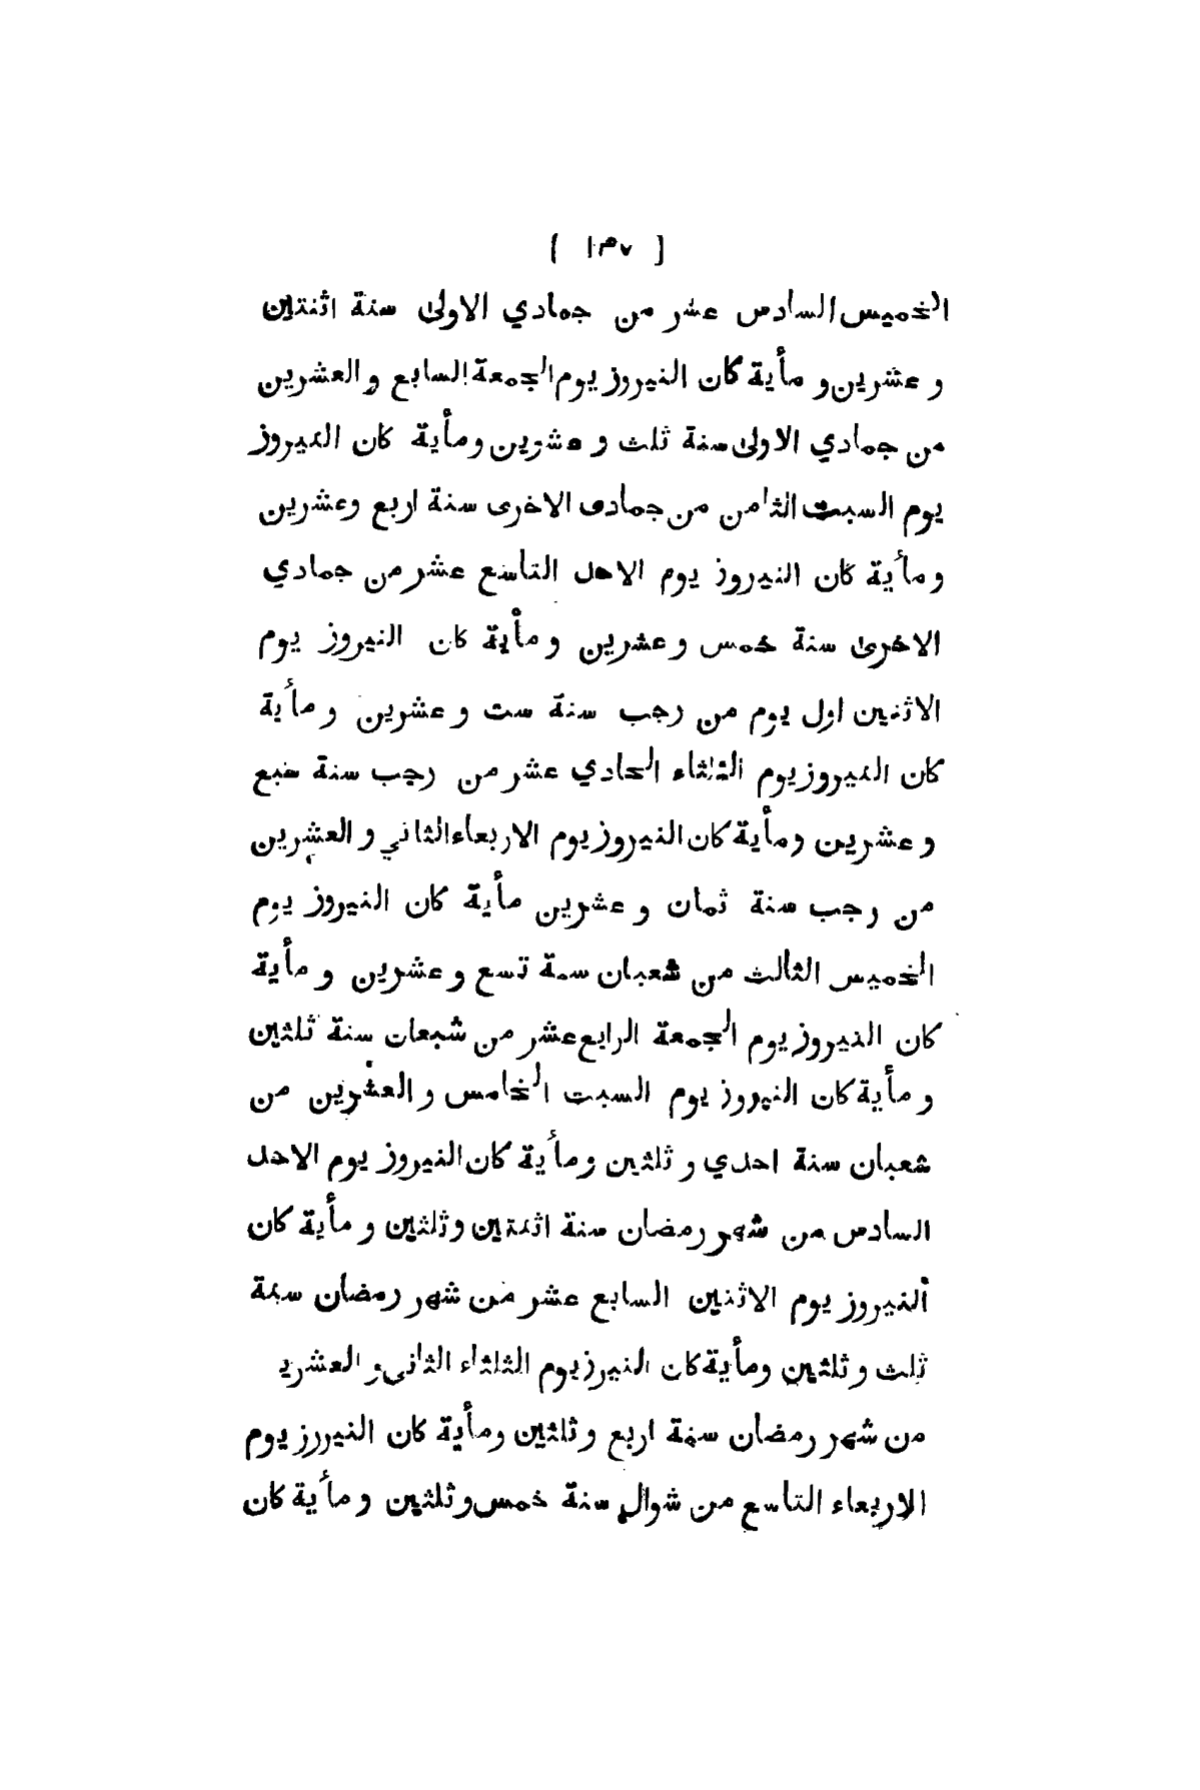 ( ١٣٧ )
الخميس السادس عشر من جمادي الاولى سنة اثنتين
و عشرين و مأية كان النيروز يوم الجمعة السابع و العشرين
من جمادي الاولى سنة ثلث و عشرين ومأية كان النيروز
يوم السبت الثامن من جمادى الاخرى سنة اربع وعشرين
ومأية كان النيروز يوم الاحد التاسع عشر من جمادي
الاخرى سنة خمس و عشرين و مأية كان النيروز يوم
الاثنين اول يوم من رجب سنة ست و عشرين و مأية
كان النيروز يوم الثلثاء الحادي عشر من رجب سنة سبع
و عشرين ومأية كان النيروز يوم الاربعاء الثاني و العشرين
من رجب سنة ثمان و عشرين مأية كان النيروز يوم
الخميس الثالث من شعبان سنة تسع و عشرين و مأية
كان النيروز يوم الجمعة الرابع عشر من شبعان سنة ثلثين
و مأية كان النيروز يوم السبت الخامس و العشرين من
شعبان سنة احدي و ثلثين ومأية كان النيروز يوم الاحد
السادس من شهر رمضان سنة اثنتين وثلثين و مأية كان
النيروز يوم الاثنين السابع عشر من شهر رمضان سنة
ثلث و ثلثين ومأية كان النيرز يوم الثلثاء الثانى و العشري
من شهر رمضان سنة اربع و ثلثين ومأية كان النيررز يوم
الاربعاء التاسع من شوال سنة خمس و ثلثين و مأية كان